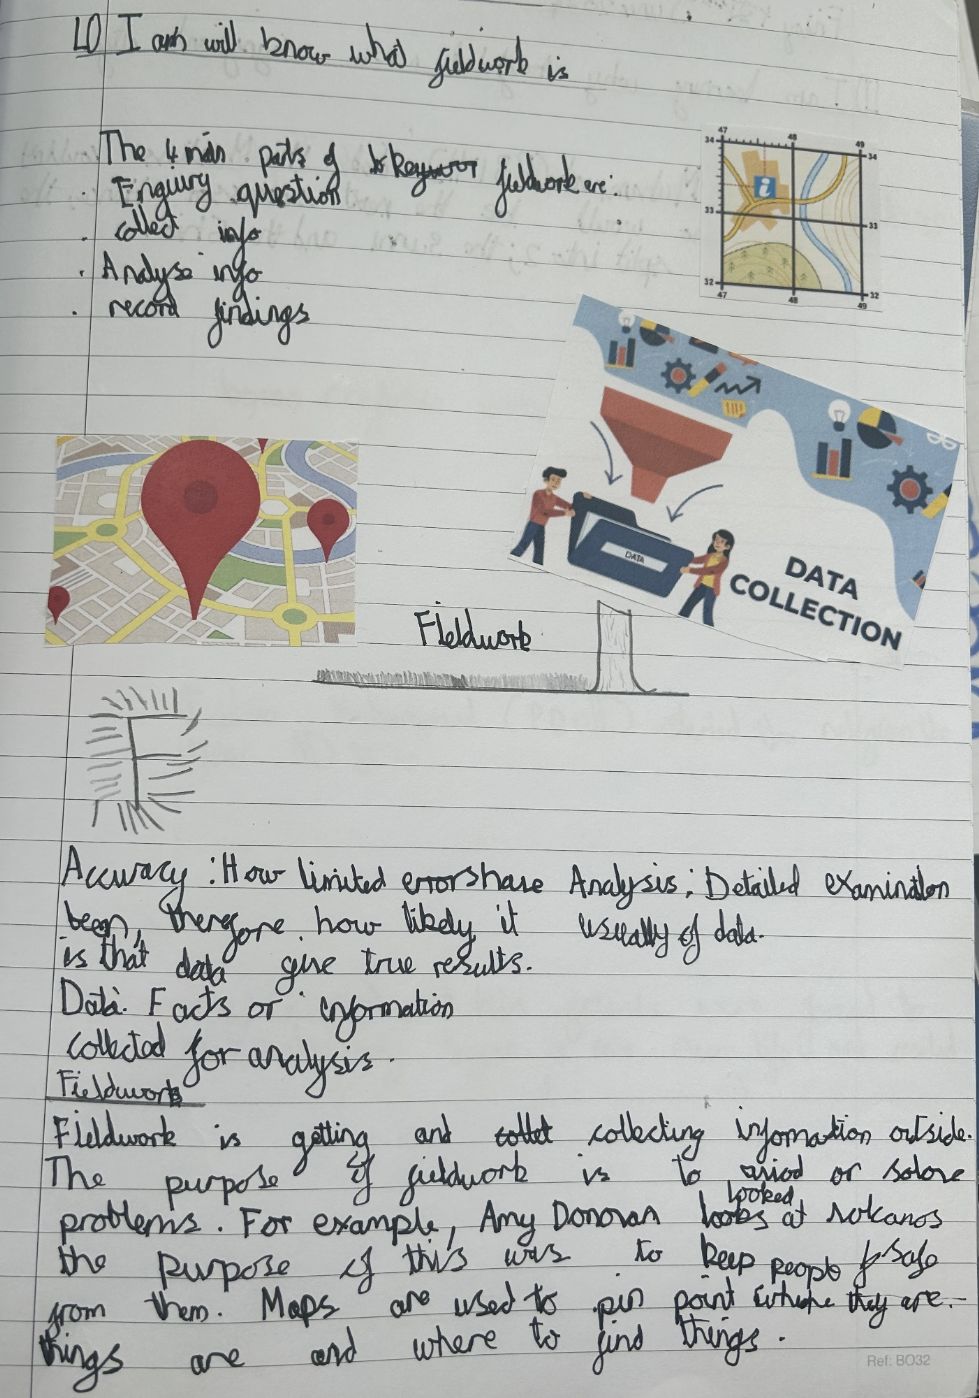 LO I am will know what fieldwork is
The 4 main parts of keywor fieldwork are:
· Enquiry question
· collect info
· Analyse info
· record findings
47 48 49
34 34
33 33
32 32
47 48 49
i
DATA
DATA
COLLECTION
Fieldwork
F
Accuracy: How limited errors have
been, therefore how likely it
is that data give true results.
Analysis: Detailed examination
usually of data.
Data: Facts or information
collected for analysis.
Fieldwork
Fieldwork is getting and collet collecting infomation outside.
The purpose of fieldwork is to aviod or solove
problems. For example, Amy Donovan looks looked at volcanos
the purpose of this was to keep people safe
from them. Maps are used to pin point where they are.
things are and where to find things.
Ref: BO32